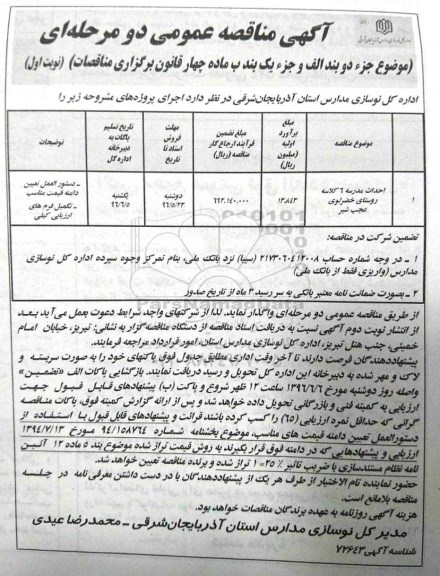 آگهی مناقصه عمومی دو مرحله‌ای
(موضوع جزء دو بند الف و جزء یک بند ب ماده چهار قانون برگزاری مناقصات) (نوبت اول)
اداره کل نوسازی مدارس استان آذربایجان‌شرقی در نظر دارد اجرای پروژه‌های مشروحه زیر را
موضوع مناقصه
مبلغ برآورد اولیه (میلیون ریال)
مبلغ تضمین فرآیند ارجاع کار مناقصه (ریال)
مهلت فروش اسناد تا تاریخ
تاریخ تسلیم پاکات به دبیرخانه اداره کل
توضیحات
۱
احداث مدرسه ۶ کلاسه روستای خضرلوی عجب شیر
۱۳۸۴۳
۶۹۳،۱۴۰،۰۰۰
دوشنبه ۹۶/۵/۲۳
یکشنبه ۹۶/۶/۵
ـ دستور العمل تعیین دامنه قیمت مناسب
ـ تکمیل فرم های ارزیابی کیفی
تضمین شرکت در مناقصه:
۱ ـ در وجه شماره حساب ۲۱۷۳۰۶۰۴۱۲۰۰۸ (سیبا) نزد بانک ملی، بنام تمرکز وجوه سپرده اداره کل نوسازی
مدارس (واریزی فقط از بانک ملی)
۲ ـ بصورت ضمانت نامه معتبر بانکی به سر رسید ۳ ماه از تاریخ صدور
از طریق مناقصه عمومی دو مرحله‌ای واگذار نماید. لذا از شرکتهای واجد شرایط دعوت بعمل می‌آید بعد
از انتشار نوبت دوم آگهی نسبت به دریافت اسناد مناقصه از دستگاه مناقصه‌گزار به نشانی: تبریز، خیابان امام
خمینی، جنب هتل تبریز، اداره کل نوسازی مدارس استان، امور قرارداد مراجعه فرمایند.
پیشنهاددهندگان فرصت دارند تا آخر وقت اداری مطابق جدول فوق پاکتهای خود را به صورت سربسته و
لاک و مهر شده به دبیرخانه این اداره کل تحویل و رسید دریافت نمایند. بازگشایی پاکات الف «تضمین»
واصله روز دوشنبه مورخ ۱۳۹۶/۶/۶ ساعت ۱۲ ظهر شروع و پاکت (ب) پیشنهادهای قابل قبول جهت
ارزیابی به کمیته فنی و بازرگانی تحویل داده خواهد شد و پس از ارائه گزارش کمیته فوق، پاکات مناقصه
گرانی که حداقل نمره ارزیابی (۶۵) را کسب کرده باشند قرائت و پیشنهادهای قابل قبول با استفاده از
دستورالعمل تعیین دامنه قیمت های مناسب، موضوع بخشنامه شماره ۹۴/۱۵۸۷۶۴ مورخ ۱۳۹۴/۷/۱۳
ارزیابی و پیشنهادهایی که در دامنه فوق قرار بگیرند به روش قیمت تراز شده موضوع بند ۵ ماده ۱۲ آئین
نامه نظام مستندسازی با ضریب تاثیر ٪۲۵= i تراز شده و برنده مناقصه تعیین خواهد شد.
حضور نماینده تام الاختیار از طرف هر یک از پیشنهاددهندگان با در دست داشتن معرفی نامه در جلسه
مناقصه بلامانع است.
هزینه آگهی روزنامه به عهده برندگان مناقصات خواهد بود.
مدیر کل نوسازی مدارس استان آذربایجان‌شرقی ـ محمدرضا عیدی
شناسه آگهی ۷۲۶۴۳